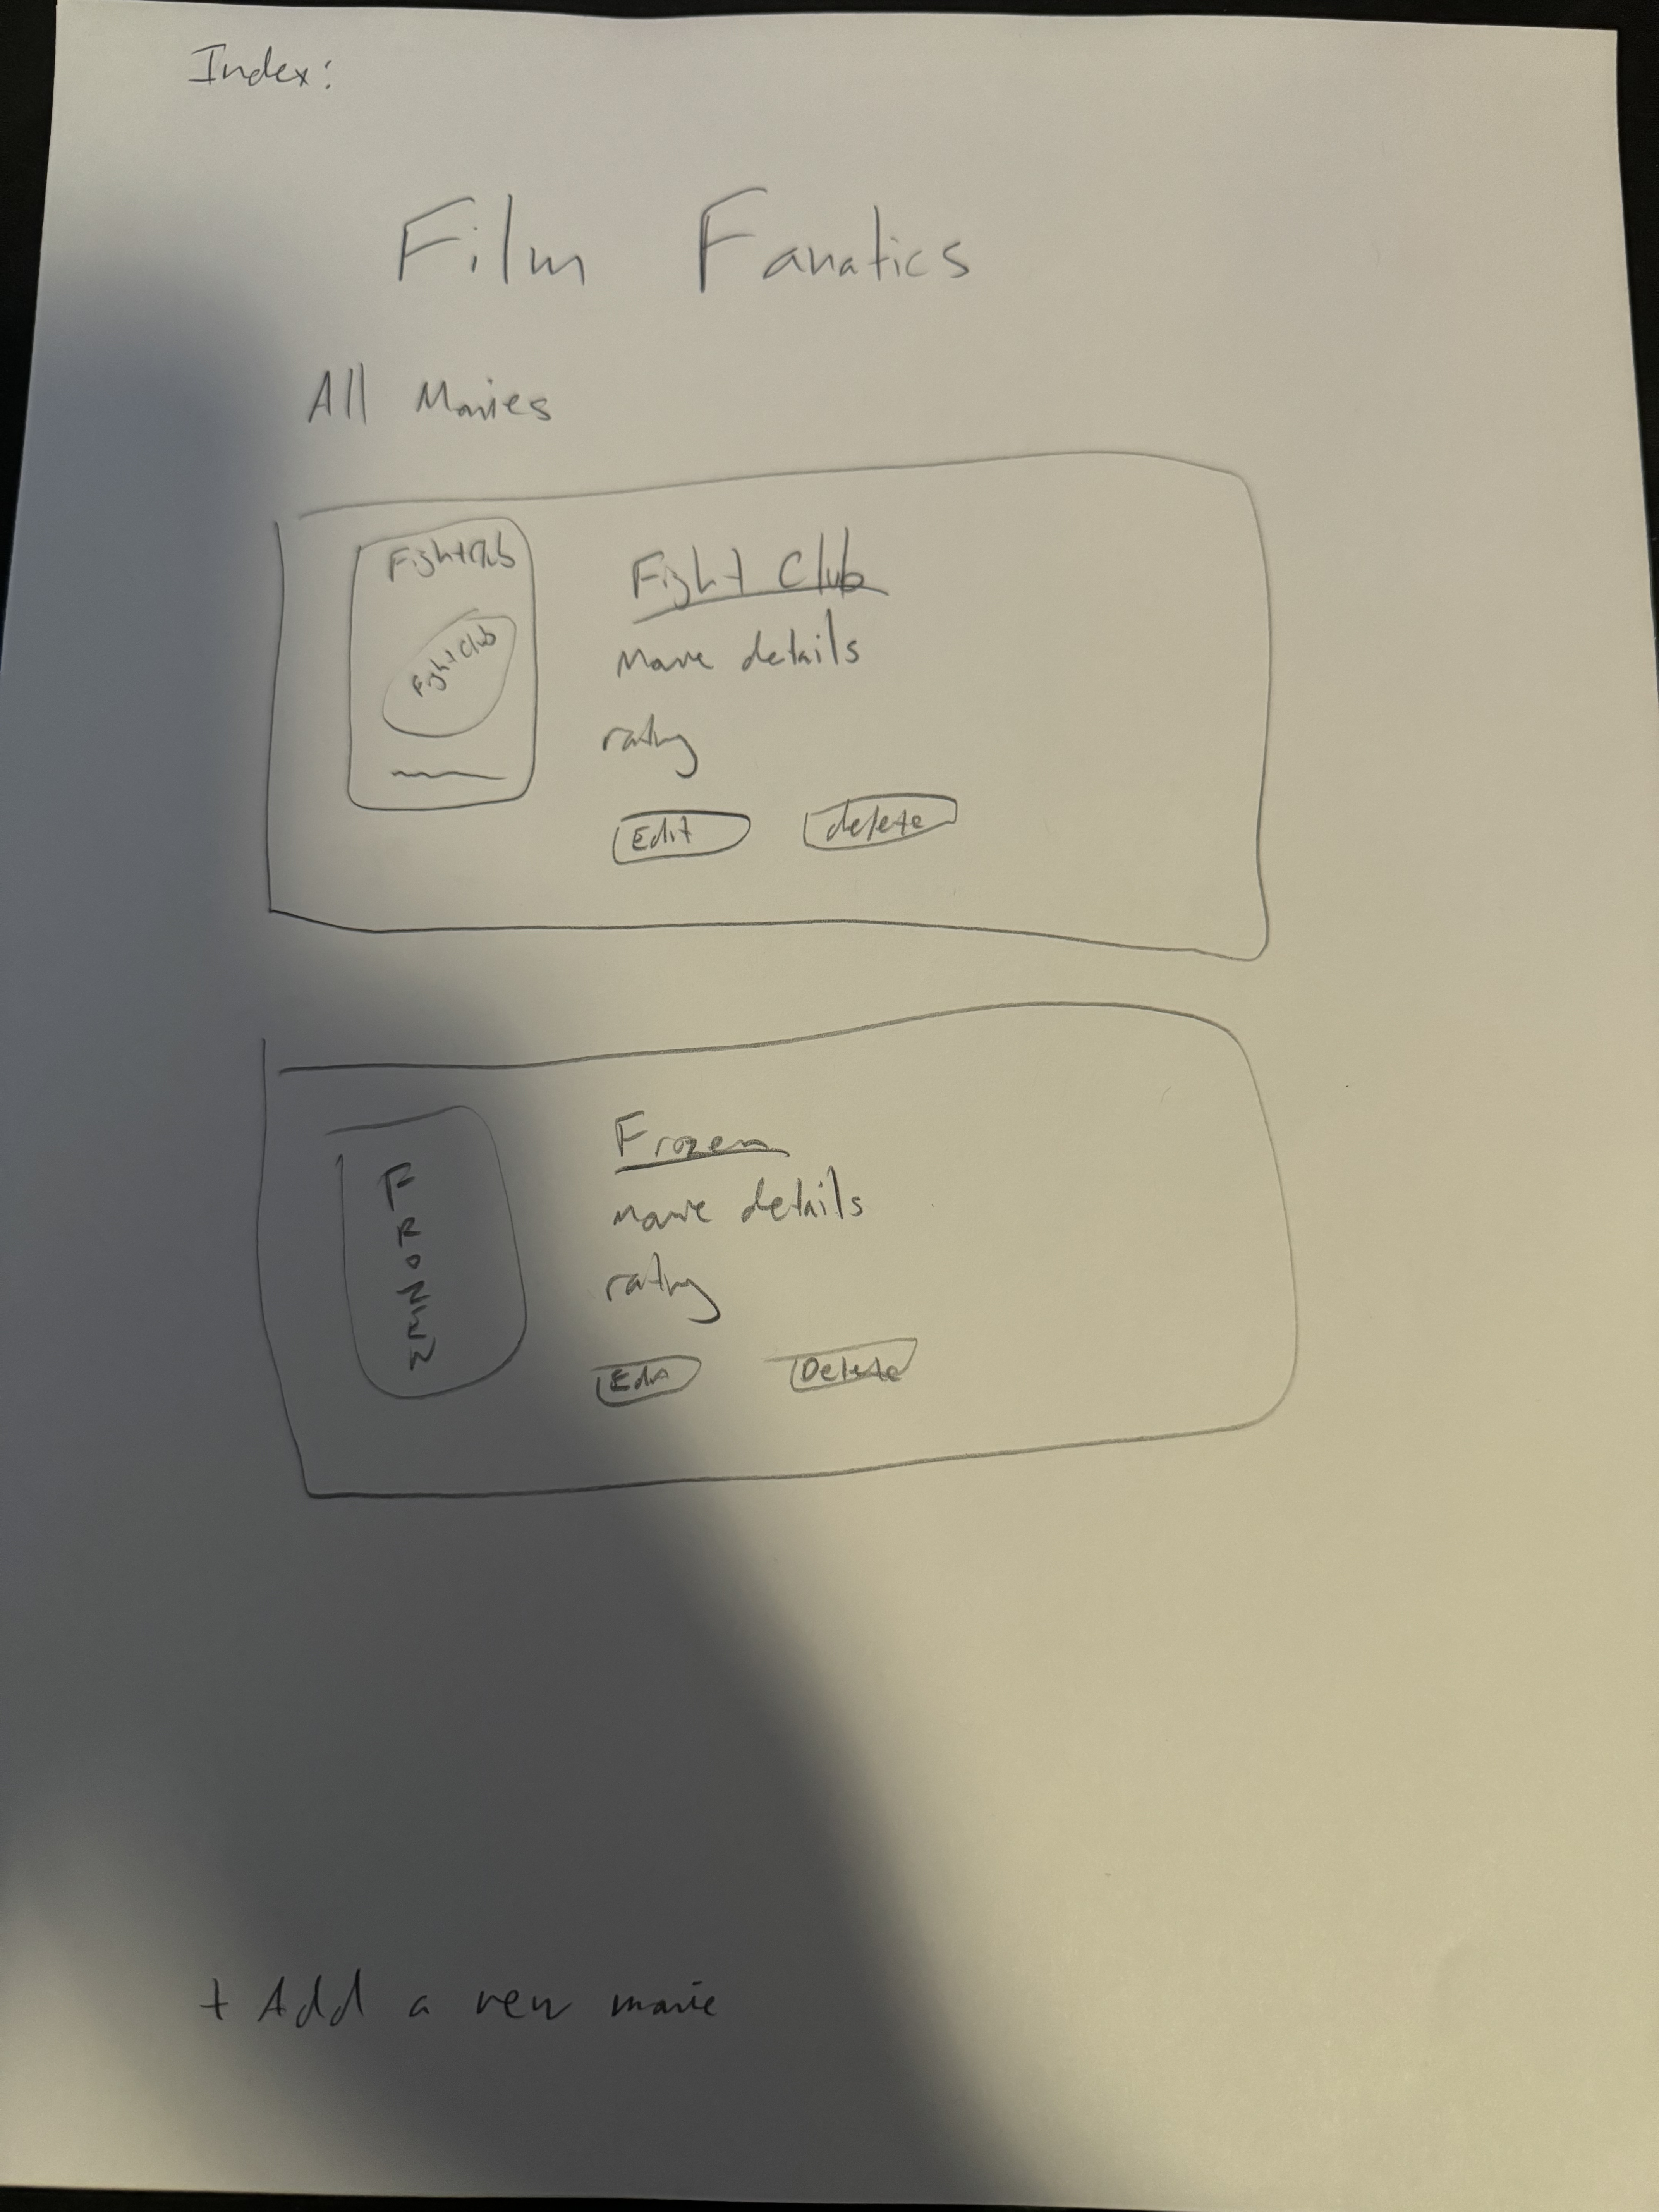 Index:
Film Fanatics
All Movies
Fight Club
Fight Club
Fight Club
movie details
rating
Edit
delete
FROZEN
Frozen
movie details
rating
Edit
Delete
+ Add a new movie